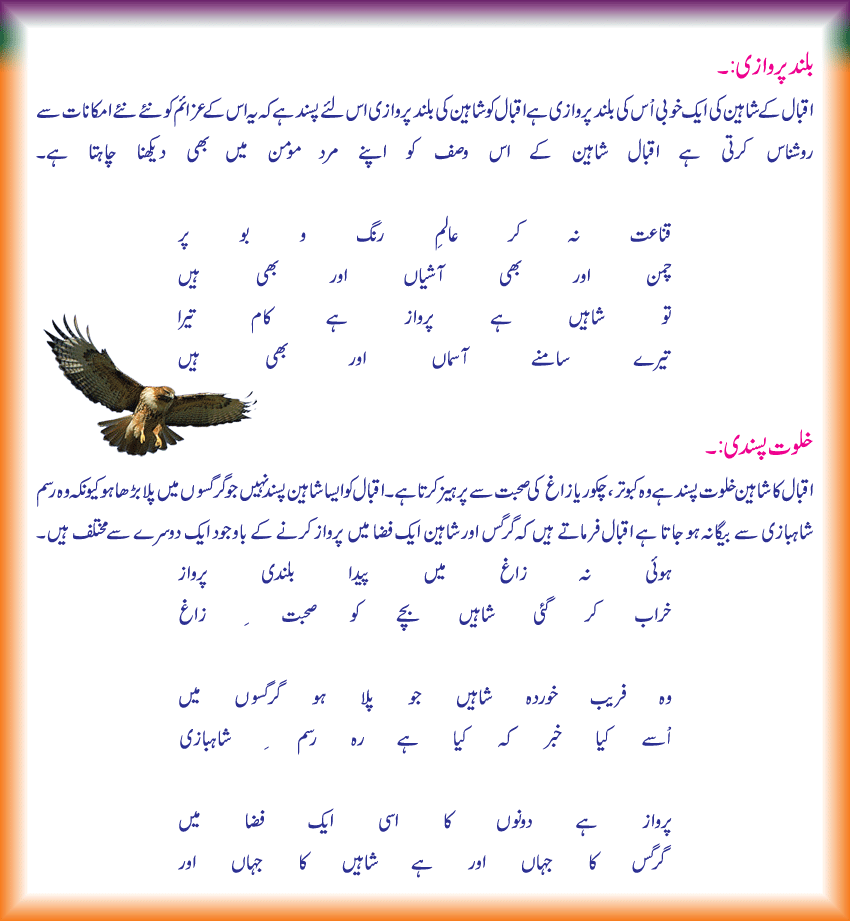 بلند پروازی:۔
اقبال کے شاہین کی ایک خوبی اُس کی بلند پروازی ہے اقبال کو شاہین کی بلند پروازی اس لئے پسند ہے کہ یہ اس کے عزائم کو نئے نئے امکانات سے
روشناس کرتی ہے اقبال شاہین کے اس وصف کو اپنے مرد مؤمن میں بھی دیکھنا چاہتا ہے۔
قناعت نہ کر عالمِ رنگ و بو پر
چمن اور بھی آشیاں اور بھی ہیں
تو شاہیں ہے پرواز ہے کام تیرا
تیرے سامنے آسماں اور بھی ہیں
خلوت پسندی:۔
اقبال کا شاہین خلوت پسند ہے وہ کبوتر، چکور یا زاغ کی صحبت سے پرہیز کرتا ہے۔ اقبال کو ایسا شاہین پسند نہیں جو گرگسوں میں پلا بڑھا ہو کیونکہ وہ رسم
شاہبازی سے بیگانہ ہو جاتا ہے اقبال فرماتے ہیں کہ گرگس اور شاہین ایک فضا میں پرواز کرنے کے باوجود ایک دوسرے سے مختلف ہیں۔
ہوئی نہ زاغ میں پیدا بلندی پرواز
خراب کر گئی شاہیں بچے کو صحبت ِ زاغ
وہ فریب خوردہ شاہیں جو پلا ہو گرگسوں میں
اُسے کیا خبر کہ کیا ہے رہ رسم ِ شاہبازی
پرواز ہے دونوں کا اسی ایک فضا میں
گرگس کا جہاں اور ہے شاہیں کا جہاں اور